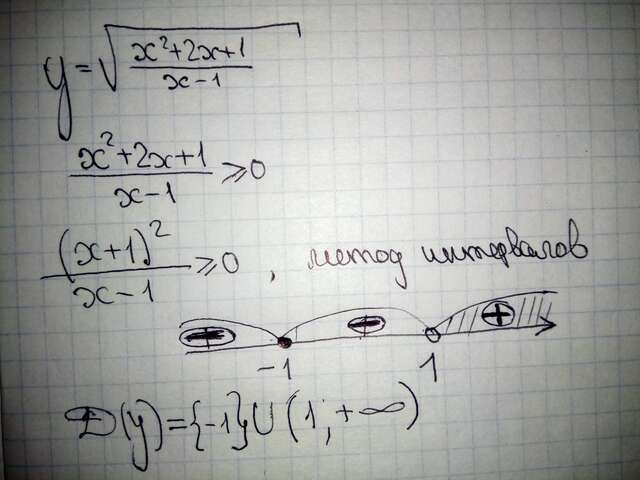 y = √((x²+2x+1)/(x-1))
(x²+2x+1)/(x-1) ≥ 0
(x+1)²/(x-1) ≥ 0 , метод интервалов
− − +
-1 1
D(y) = {-1} ∪ (1, +∞)